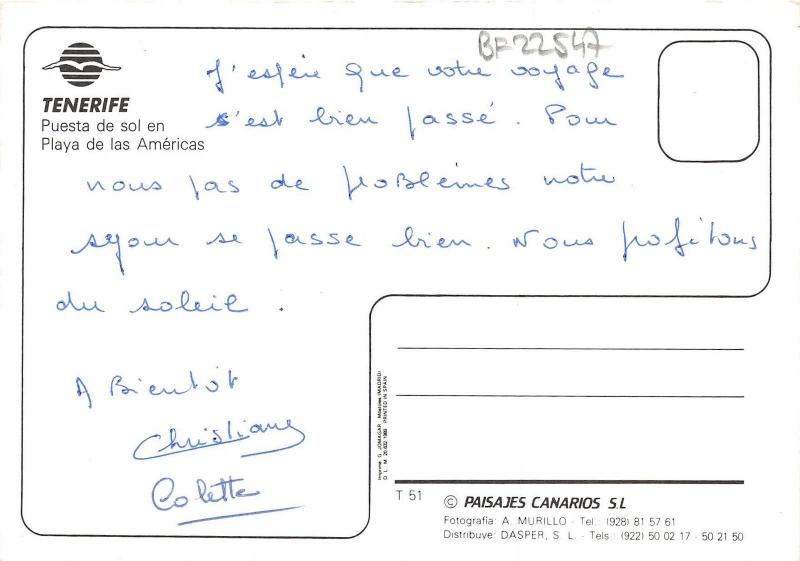 BF22547
TENERIFE
Puesta de sol en
Playa de las Américas
J'espère que votre voyage
s'est bien passé. Pour
nous pas de problèmes notre
séjour se passe bien. Nous profitons
du soleil.
A Bientôt
Christiane
Colette
Imprime: G. JOMAGAR Móstoles (MADRID)
D. L. M. 20.632 1988 PRINTED IN SPAIN
T 51
© PAISAJES CANARIOS S.L
Fotografía: A. MURILLO - Tel.: (928) 81 57 61
Distribuye: DASPER, S. L. - Tels.: (922) 50 02 17 - 50 21 50